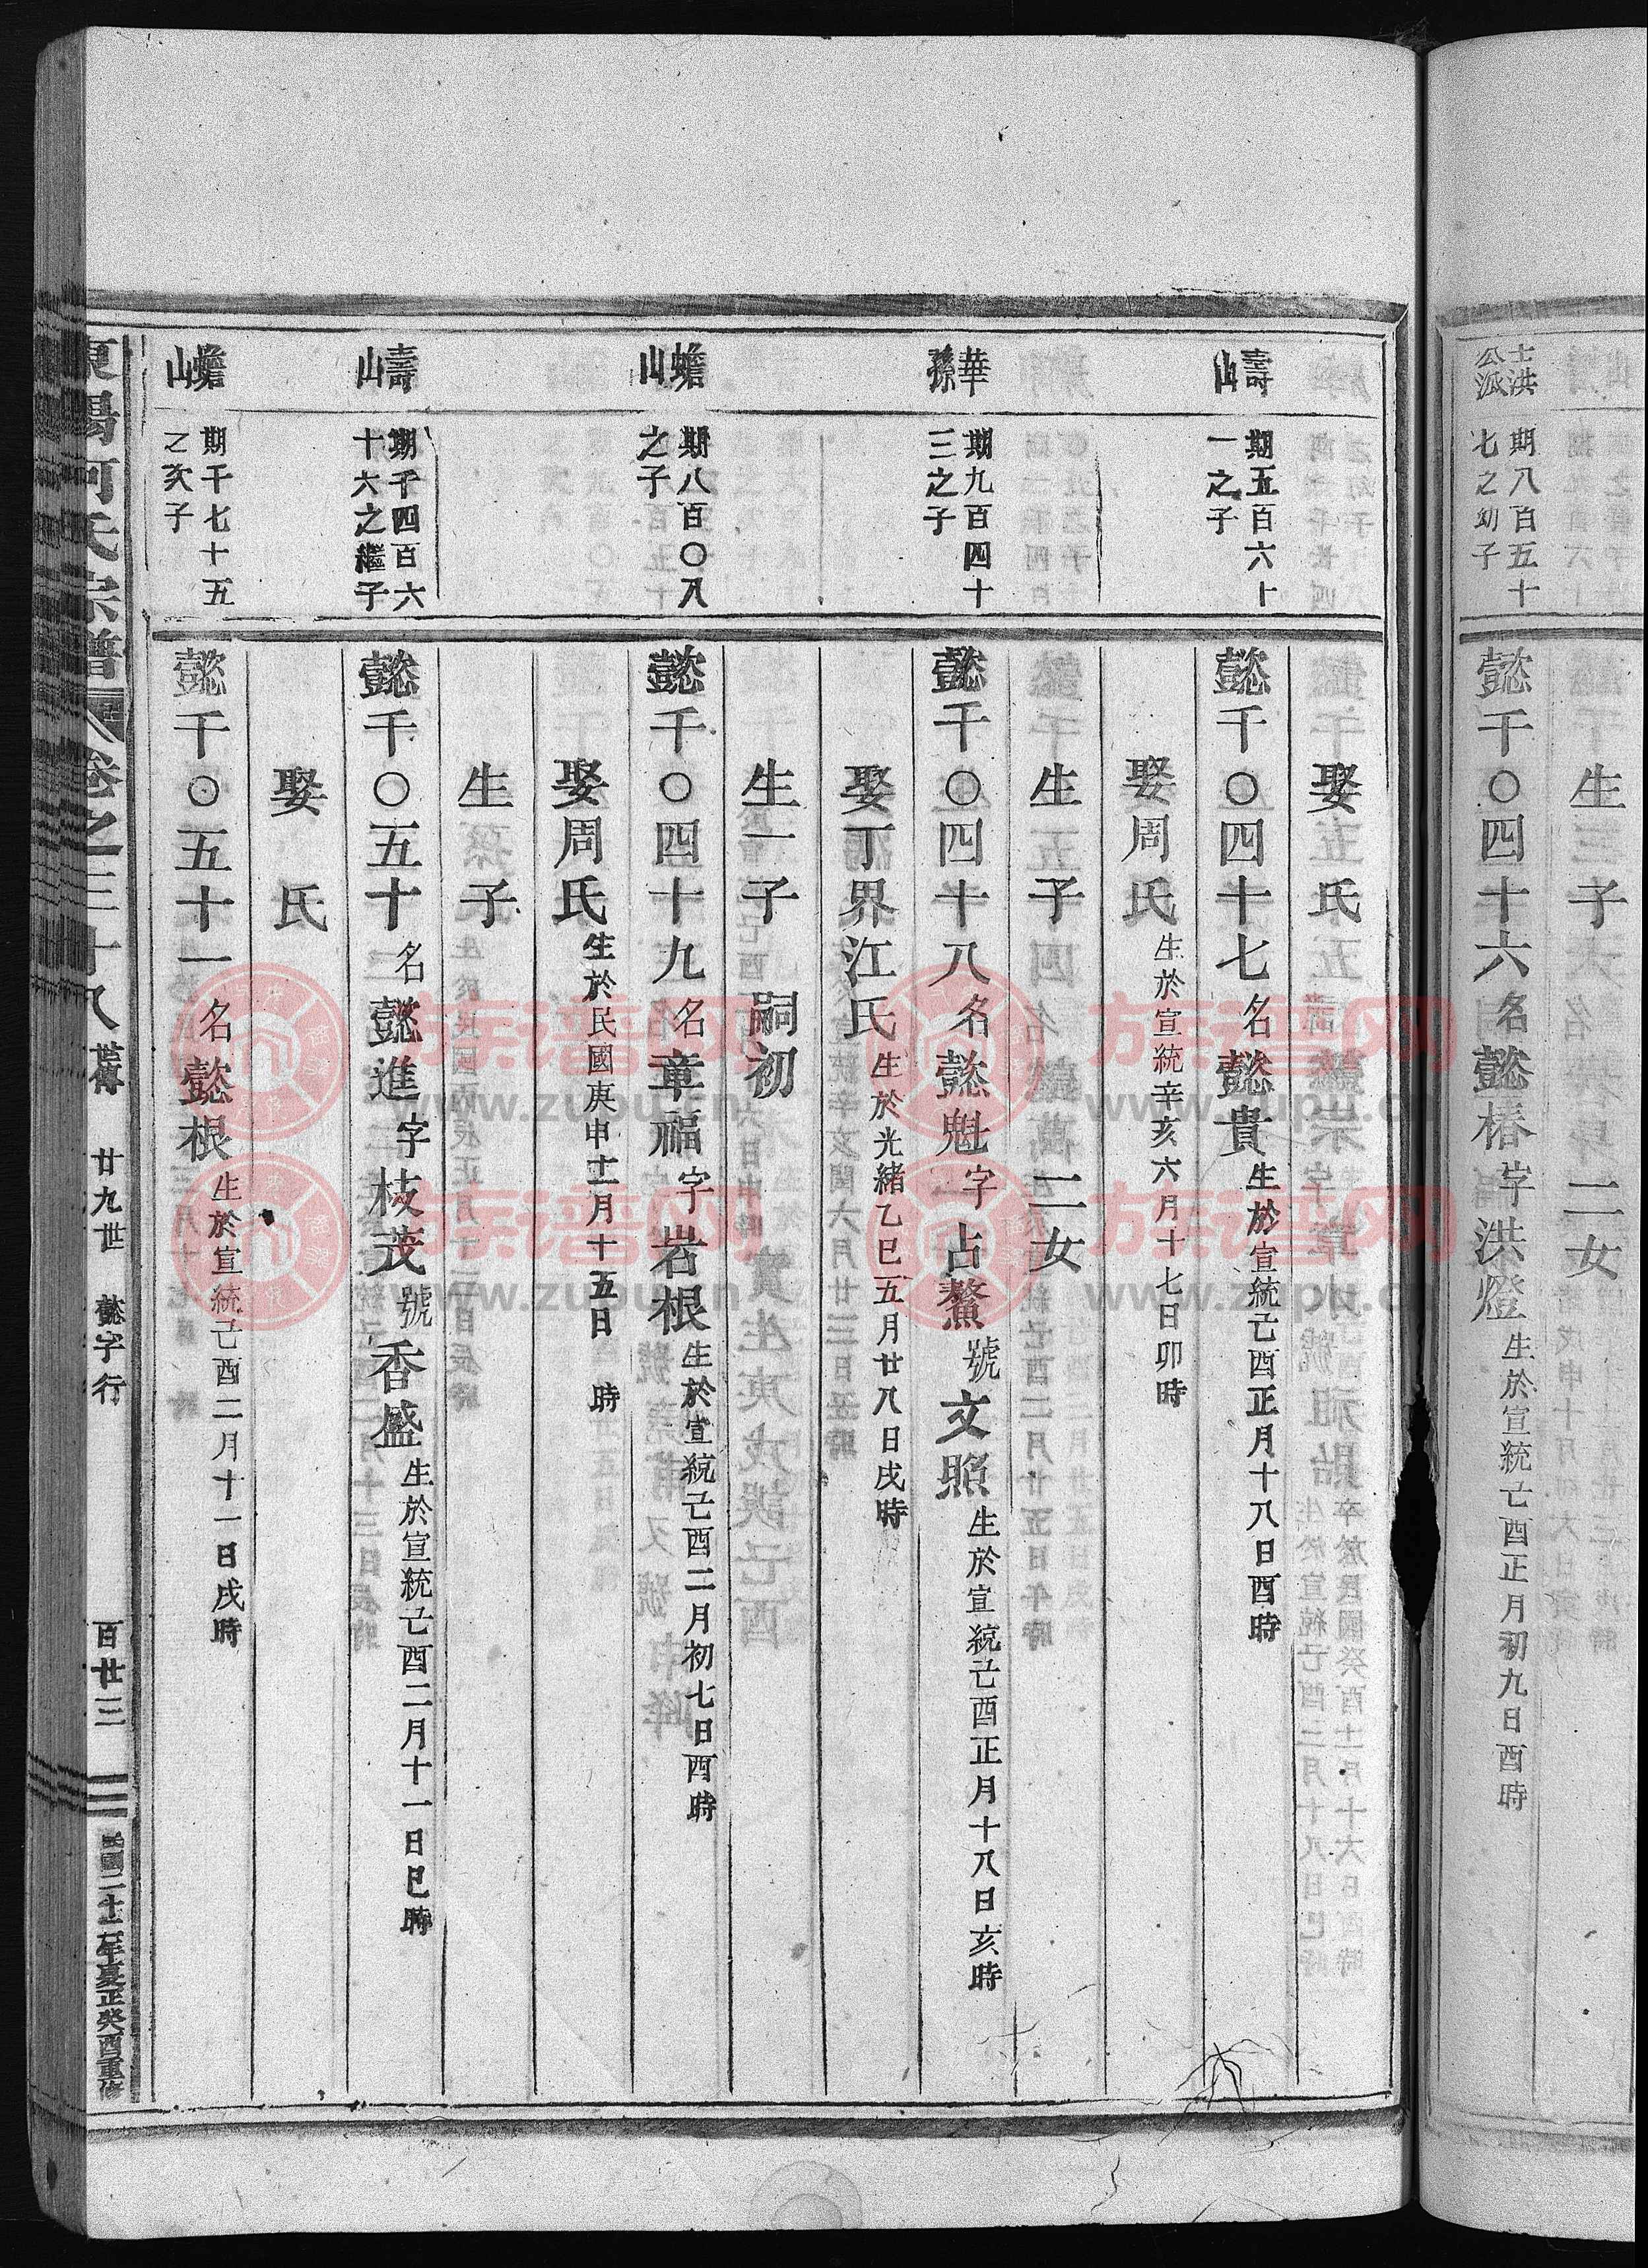 生三子 二女
士洪公派
期八百五十七之幼子
懿千〇四十六名懿椿字洪燈生於宣統己酉正月初九日酉時
娶 氏
壽山
期五百六十一之子
懿千〇四十七名懿貴生於宣統己酉正月十八日酉時
娶周氏生於宣統辛亥六月十七日卯時
生 子 二女
華孫
期九百四十三之子
懿千〇四十八名懿魁字占鰲號文照生於宣統己酉正月十八日亥時
娶丁界江氏生於光緒乙巳五月廿八日戌時
生一子 嗣初
蟾山
期八百〇八之子
懿千〇四十九名章福字岩根生於宣統己酉二月初七日酉時
娶周氏生於民國庚申十二月十五日 時
生 子
壽山
期千四百六十六之繼子
懿千〇五十名懿進字枝茂號香盛生於宣統己酉二月十一日巳時
娶 氏
蟾山
期千七十五之次子
懿千〇五十一名懿根生於宣統己酉二月十一日戌時
東陽何氏宗譜 卷之三十八 世傳 廿九世 懿字行 百廿三 民國二十二年夏正癸酉重修
族谱网
www.zupu.cn
族谱网
www.zupu.cn
族谱网
www.zupu.cn
族谱网
www.zupu.cn